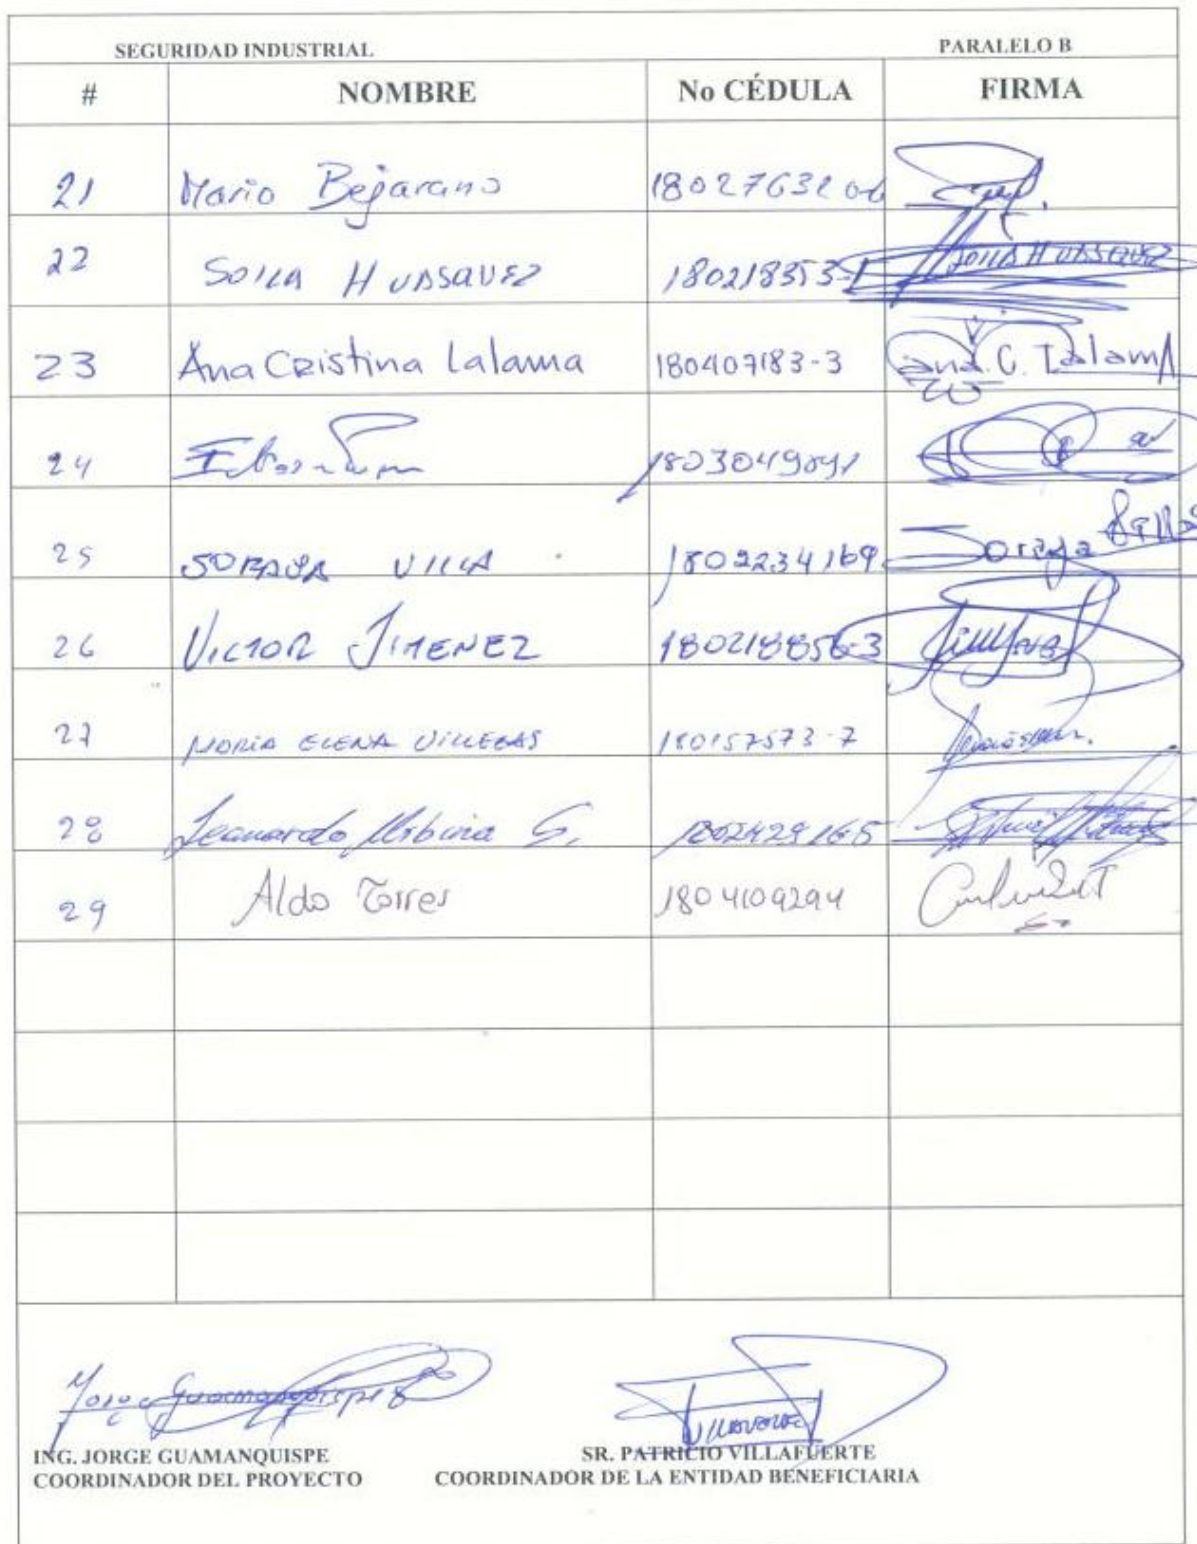 SEGURIDAD INDUSTRIAL PARALELO B
# NOMBRE No CÉDULA FIRMA
21 Mario Bejarano
22 SOILA HUASQUEZ 180218353-1 SOILA HUASQUEZ
23 Ana Cristina Lalama 180407183-3 Ana C. Lalama
24
25 SORAYA VILLA 1802234169 Soraya
26 VICTOR JIMENEZ 180218856-3
27 MARIA ELENA VILLEGAS 180157573-7
28 Leonardo Urbina G.
29 Aldo Torres 1804109294
Jorge Guamanquispe
ING. JORGE GUAMANQUISPE SR. PATRICIO VILLAFUERTE
COORDINADOR DEL PROYECTO COORDINADOR DE LA ENTIDAD BENEFICIARIA